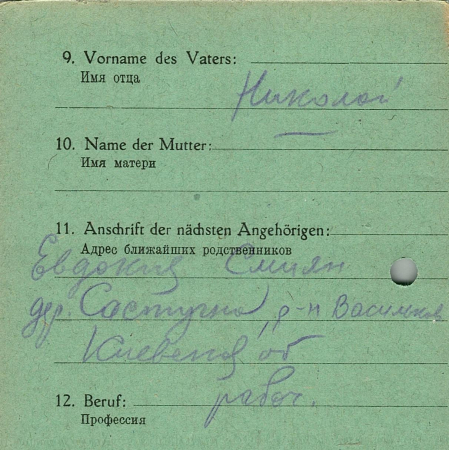 9. Vorname des Vaters:
Имя отца
Николай
10. Name der Mutter:
Имя матери
11. Anschrift der nächsten Angehörigen:
Адрес ближайших родственников
Евдокия Емиян
дер. Састугна, р-н Васильков
Киевская об
12. Beruf:
рабоч.
Профессия